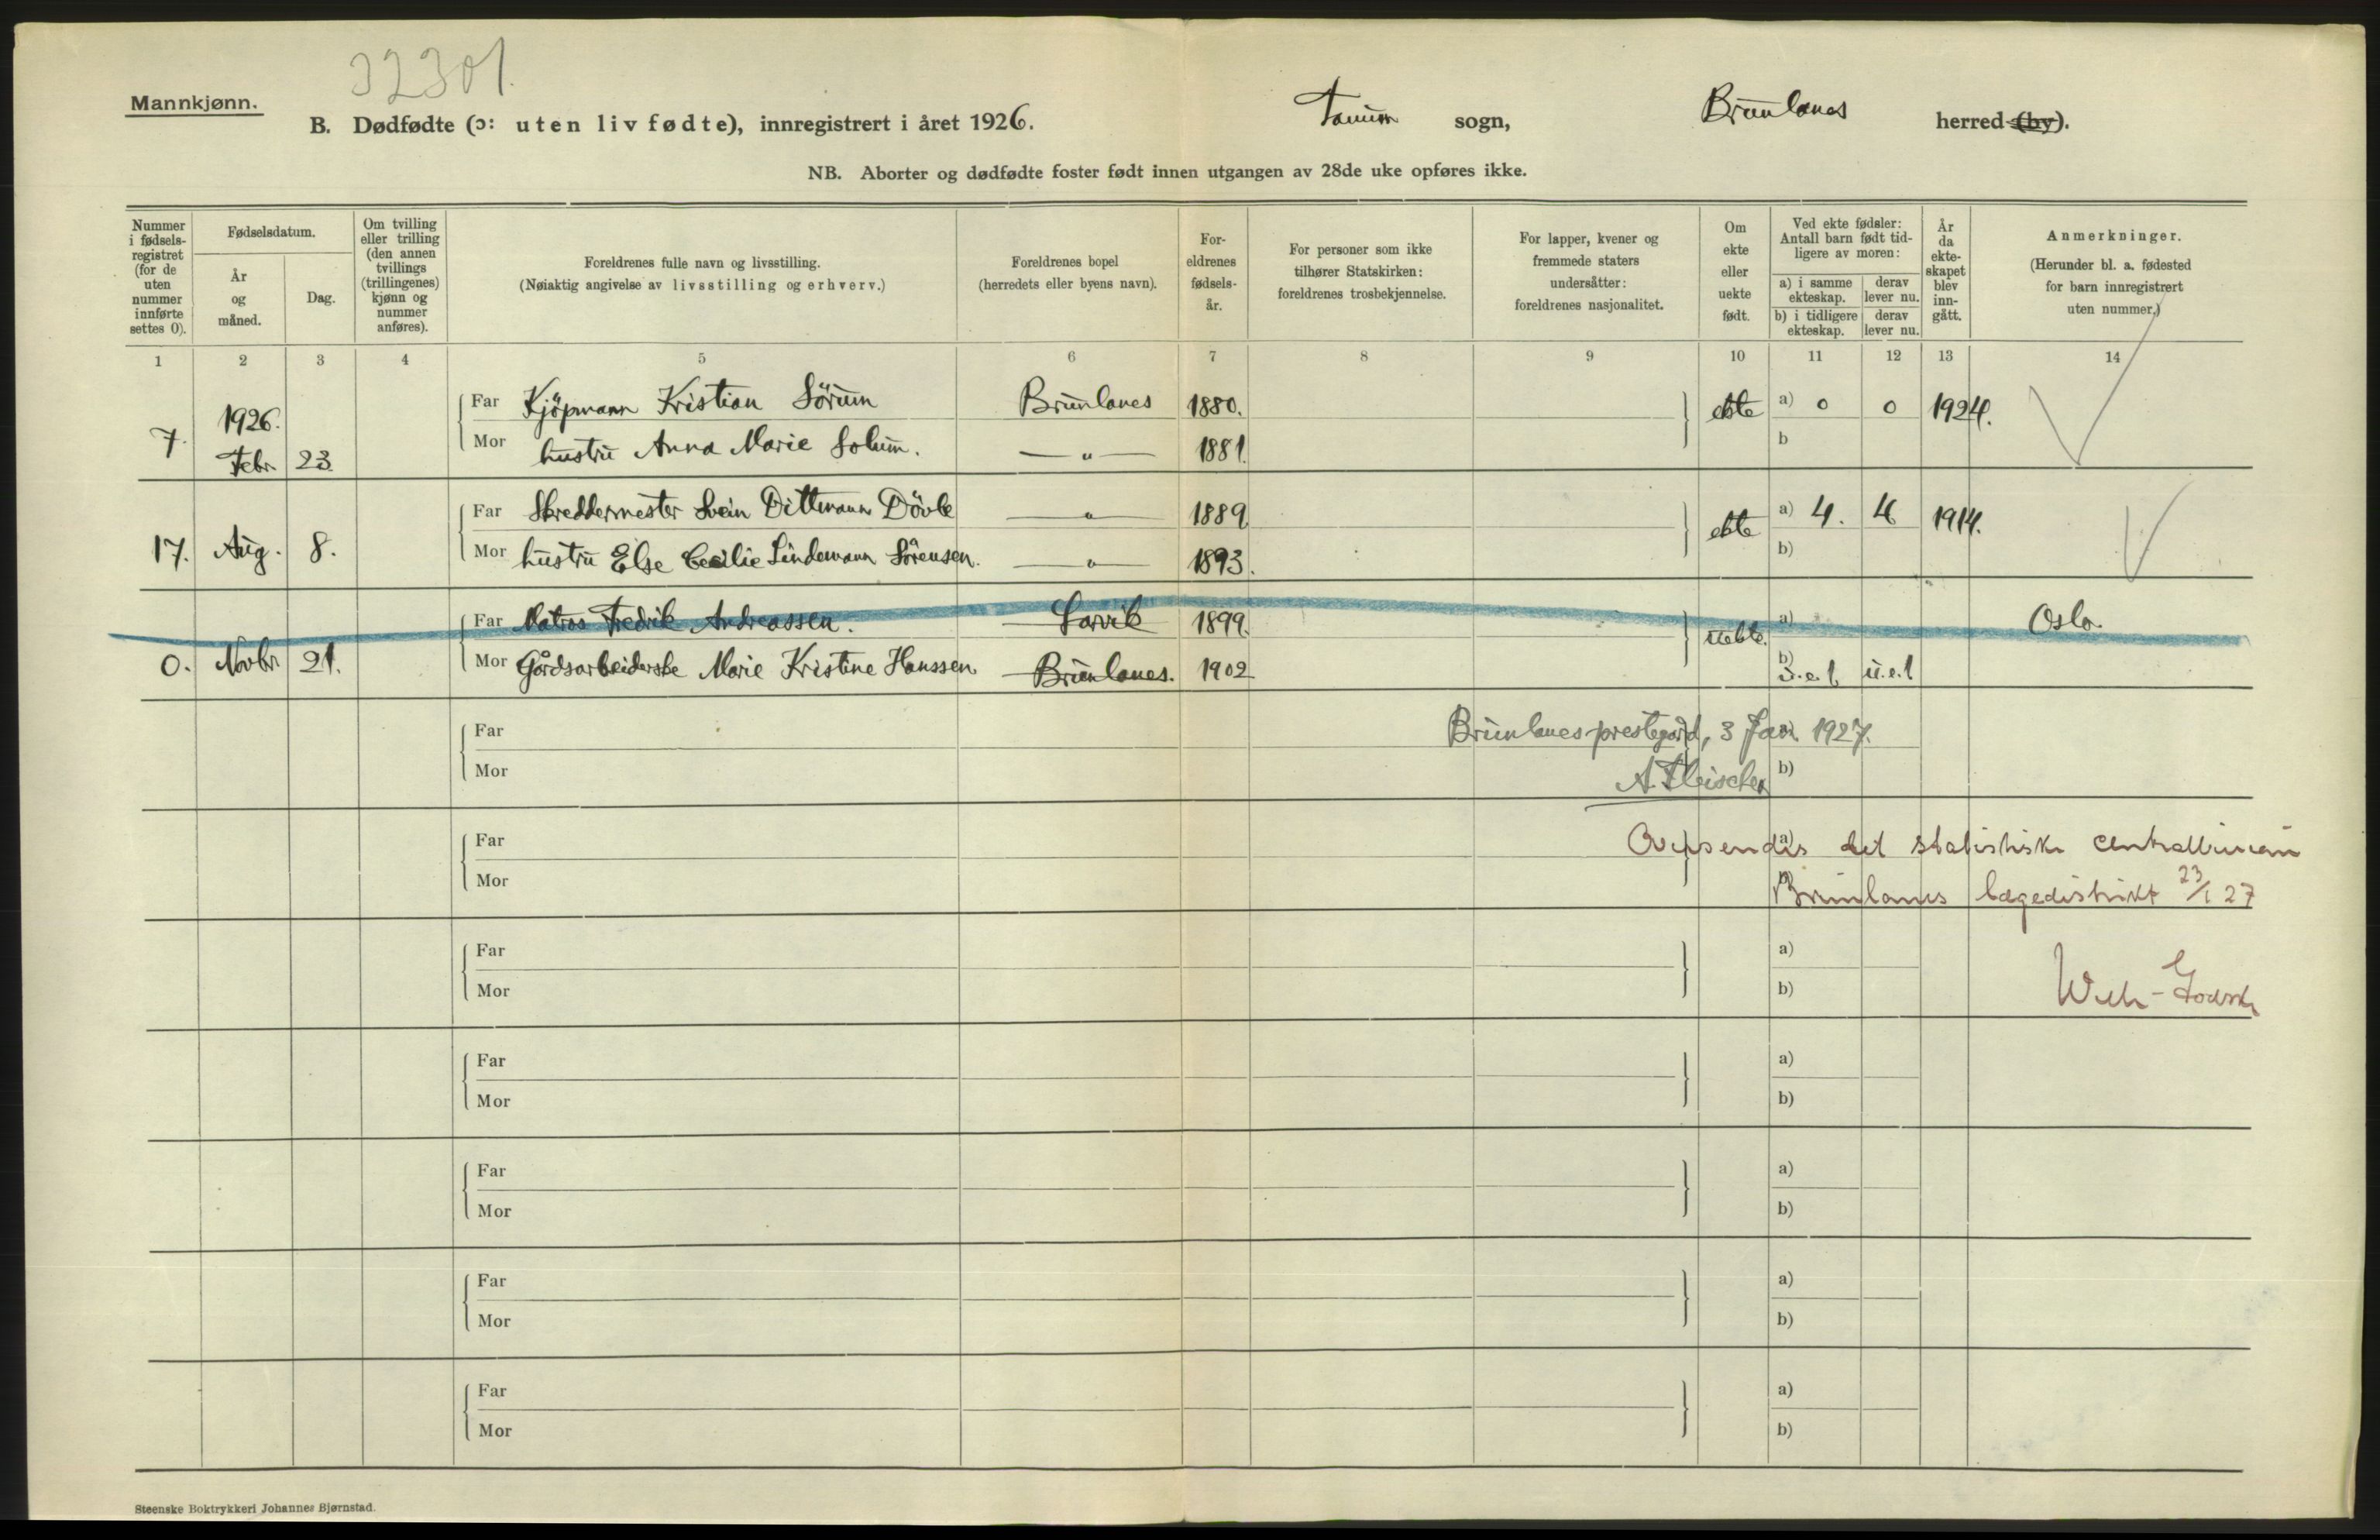 32301.
Mannkjønn.
B. Dødfødte (ɔ: uten liv fødte), innregistrert i året 1926. Tanum sogn, Brunlanes herred (by).
NB. Aborter og dødfødte foster født innen utgangen av 28de uke opføres ikke.
Nummer i fødsels-registret (for de uten nummer innførte settes 0).
Fødselsdatum.
År og måned.
Dag.
Om tvilling eller trilling (den annen tvillings (trillingenes) kjønn og nummer anføres).
Foreldrenes fulle navn og livsstilling.
(Nøiaktig angivelse av livsstilling og erhverv.)
Foreldrenes bopel
(herredets eller byens navn).
For-eldrenes fødsels-år.
For personer som ikke tilhører Statskirken: foreldrenes trosbekjennelse.
For lapper, kvener og fremmede staters undersåtter: foreldrenes nasjonalitet.
Om ekte eller uekte født.
Ved ekte fødsler: Antall barn født tid-ligere av moren:
a) i samme ekteskap. derav lever nu.
b) i tidligere ekteskap. derav lever nu.
År da ekte-skapet blev inn-gått.
Anmerkninger.
(Herunder bl. a. fødested for barn innregistrert uten nummer.)
1 2 3 4 5 6 7 8 9 10 11 12 13 14
1926. Far Kjöpmann Kristian Sörum Brunlanes 1880. ekte a) 0 0 1924.
7. Febr. 23 Mor hustru Anna Marie Solum. — „ — 1881. b
Far Skreddermester Svein Dittmann Dövle — „ — 1889 ekte a) 4. 4 1914.
17. Aug. 8. Mor hustru Else Cecilie Lindemann Sörensen. — „ — 1893. b)
Far Matros Fredrik Andreassen. Larvik 1899. uekte. a) Oslo.
0. Novbr 21. Mor Gårdsarbeiderske Marie Kristine Hanssen Brunlanes. 1902 b) u.e.f. u.e.f
Far Brunlanes prestegård, 3 Jan. 1927.
Mor A. Fleischer b)
Far Oversendes det statistiske centralbureau a)
Mor Brunlanes lægedistrikt 23/1 27
Far a)
Mor b)
Far a)
Mor b)
Far a)
Mor b)
Far a)
Mor b)
Far a)
Mor b)
Steenske Boktrykkeri Johannes Bjørnstad.